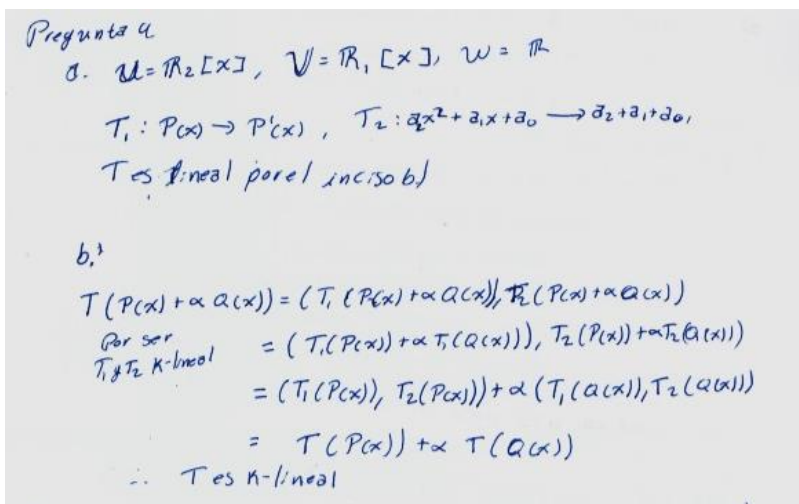 Pregunta 4
a. U = ℝ₂[x], V = ℝ₁[x], W = ℝ
T₁: P(x) → P'(x), T₂: a₂x² + a₁x + a₀ → a₂ + a₁ + a₀,
T es lineal por el inciso b)
b.
T(P(x) + α Q(x)) = (T₁(P(x) + α Q(x)), T₂(P(x) + α Q(x))
Por ser T₁ y T₂ K-lineal
= (T₁(P(x)) + α T₁(Q(x))), T₂(P(x)) + α T₂(Q(x)))
= (T₁(P(x)), T₂(P(x))) + α (T₁(Q(x)), T₂(Q(x)))
= T(P(x)) + α T(Q(x))
∴ T es K-lineal